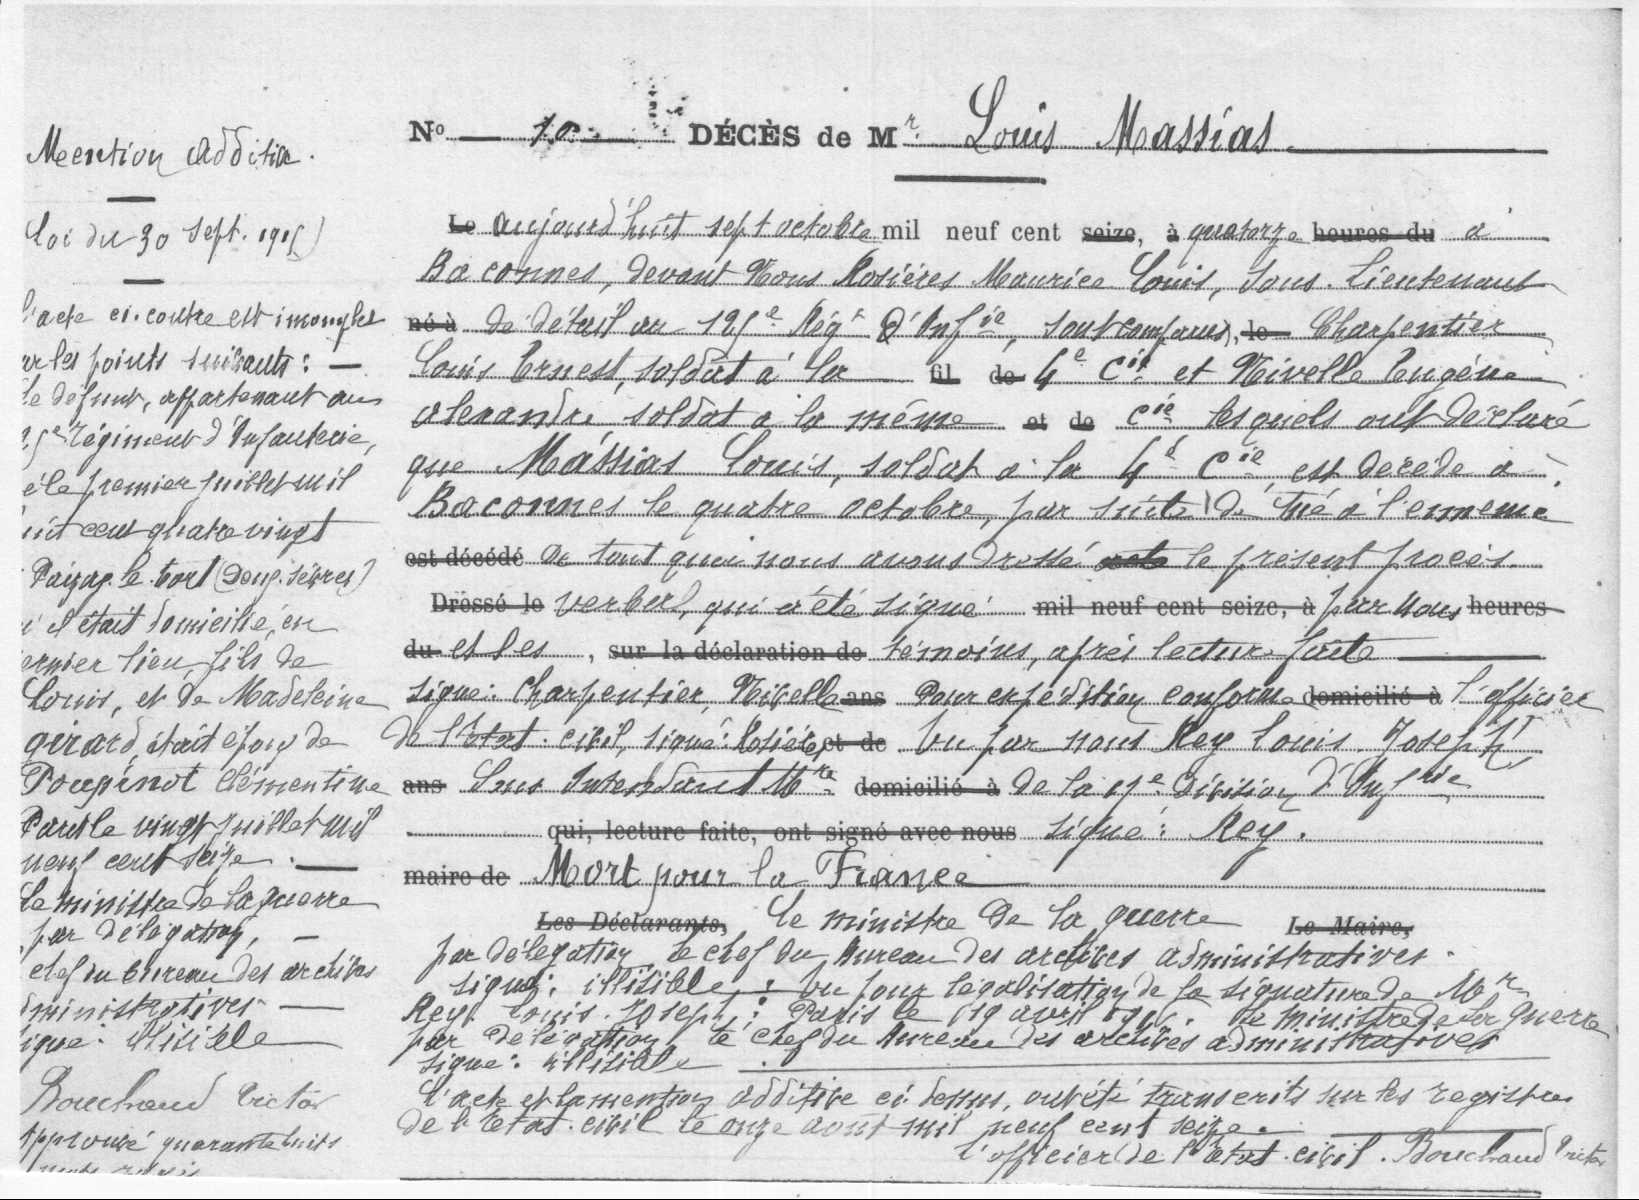 Mention additive.
(Loi du 30 sept. 1915)
L'acte ci-contre est incomplet
sur les points suivants : —
Le défunt, appartenant au
régiment d'Infanterie,
né le premier juillet mil
huit cent quatre vingt
Paizay-le-tort (Deux-Sèvres)
il était domicilié, en
dernier lieu, fils de
Louis, et de Madeleine
girard était époux de
Poupinot Clémentine
Paris le vingt juillet mil
neuf cent seize. —
Le ministre de la guerre
par délégation, —
chef du bureau des archives
administratives —
signé : illisible
Bouchaud Victor
Approuvé quarante huit
mots rayés
No 10 DÉCÈS de Mr. Louis Massias
Le aujourd'huit sept octobre mil neuf cent seize, à quatorze heures du à
Baconnes, devant Nous Rosières Maurice Louis, Sous-Lieutenant
né à de détail au 125e Régt d'Infie, sont comparus, le Charpentier
Louis Ernest, soldat à la fil de 4e Cie et Nivelle Eugène
alexandre soldat à la même et de Cie lesquels ont déclaré
que Massias Louis, soldat à la 4e Cie, est décédé à
Baconnes le quatre octobre, par suite de tué à l'ennemi
est décédé De tout quoi nous avons dressé acte le présent procès
Dressé le verbal, qui a été signé mil neuf cent seize, à par Nous heures
du et les , sur la déclaration de témoins, après lecture faite
signé : Charpentier, Nivelle ans Pour expédition conforme domicilié à l'officier
de l'Etat-civil, signé : Rosières et de Vu par nous Rey Louis-Joseph
ans Sous Intendant Mre domicilié à de la Division d'Infrie
qui, lecture faite, ont signé avec nous signé : Rey.
maire de Mort pour la France
Les Déclarants, Le ministre de la guerre Le Maire,
par délégation le chef du bureau des archives administratives.
signé : illisible : Vu pour légalisation de la signature de Mr
Rey Louis-Joseph : Paris le 19 avril Le ministre de la Guerre
par délégation le chef du bureau des archives administratives
signé : illisible
L'acte et la mention additive ci-dessus, ont été transcrits sur les registres
de l'Etat-civil le onze août mil neuf cent seize.
L'officier de l'Etat-civil. Bouchaud Victor